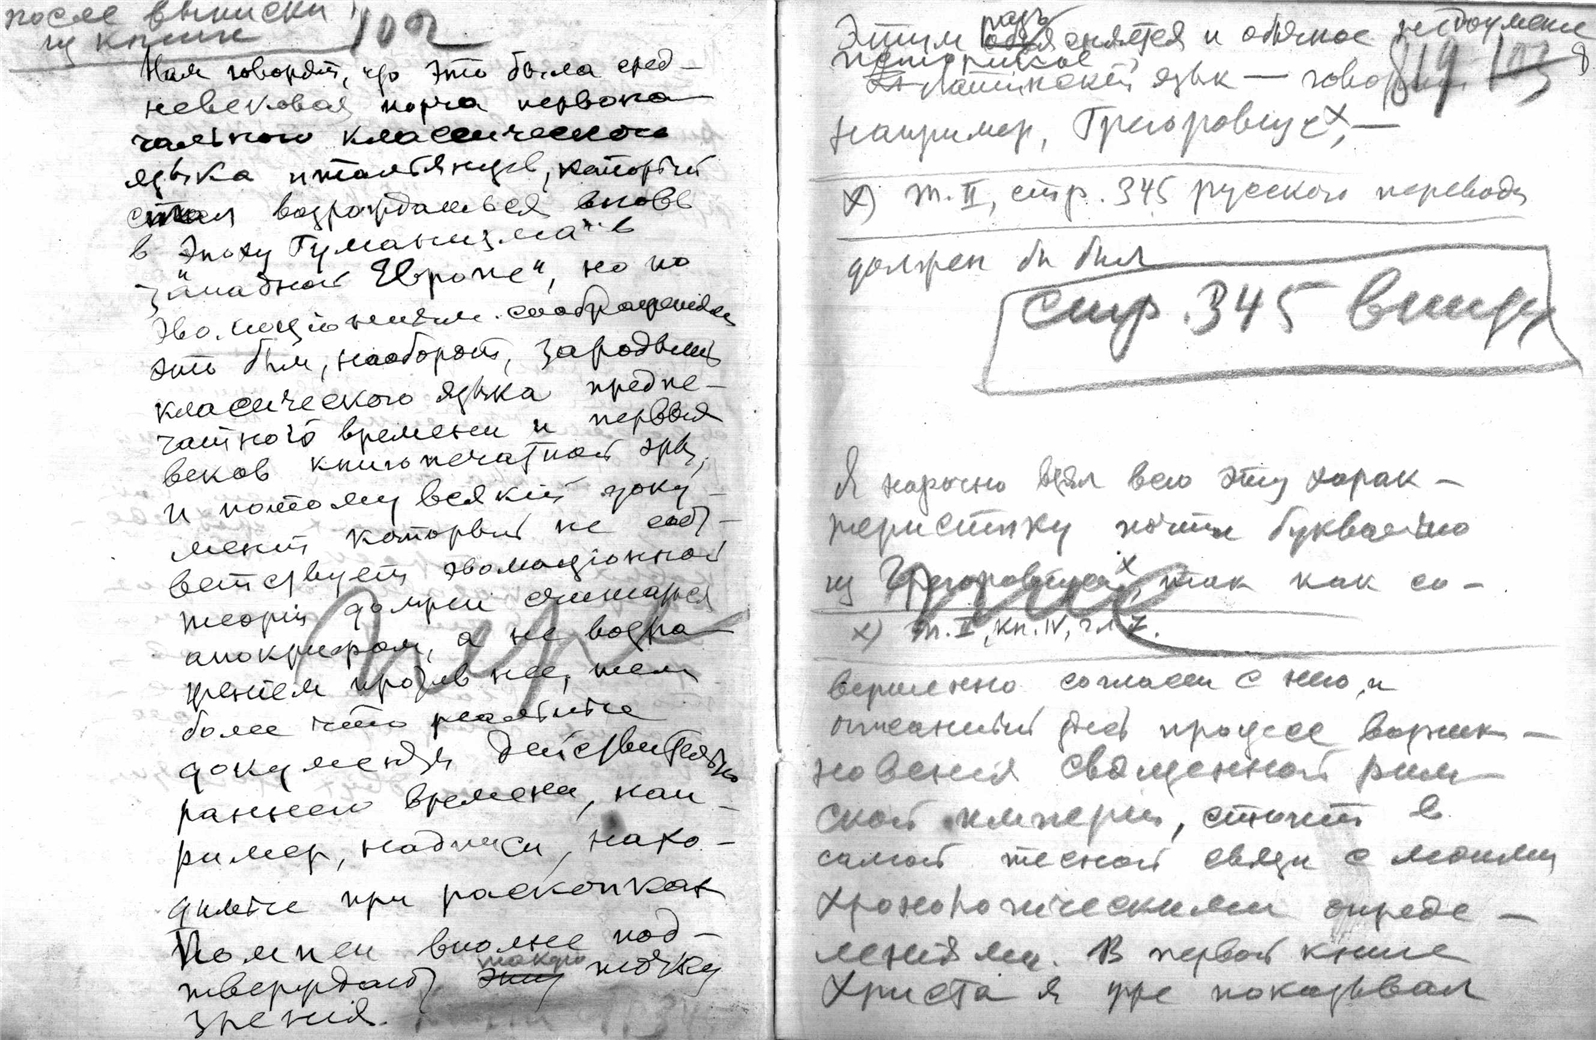 после выписки
из книги
102
Нам говорят, что это была сред-
невековая порча первона-
чального классического
языка итальянцев, который
стал возрождаться вновь
в Эпоху Гуманизма в
"Западной Европе", но по
эволюціонным соображеніям
это был, наоборот, зародыш
классического языка предпе-
чатного времени и первых
веков книгопечатной эры,
и потому всякий доку-
мент который не соот-
ветствует эволюціонной
теоріи должен считаться
апокрифом, а не возра-
женіем против нее, тем
более что реальные
документы действительно
раннего времени, нап-
ример, надписи, нахо-
димые при раскопках
Помпеи вполне под-
тверждают такую точку
зрения.
Этим разъясняется и обычное недоумение
историков
819 103
Латинский язык — говорит
например, Грегоровиус x), —
x) т. II, стр. 345 русского перевода
должен бы был
стр. 345 внизу
Я нарочно взял всю эту харак-
теристику почти буквально
из Грегоровиуса x, так как со-
x) т. II, кн. IV, гл.
вершенно согласен с нею, и
описанный процесс возник-
новения священной рим-
ской империи, стоит в
самой тесной связи с моими
хронологическими опреде-
леніями. В первой книге
Христа я уже показывал